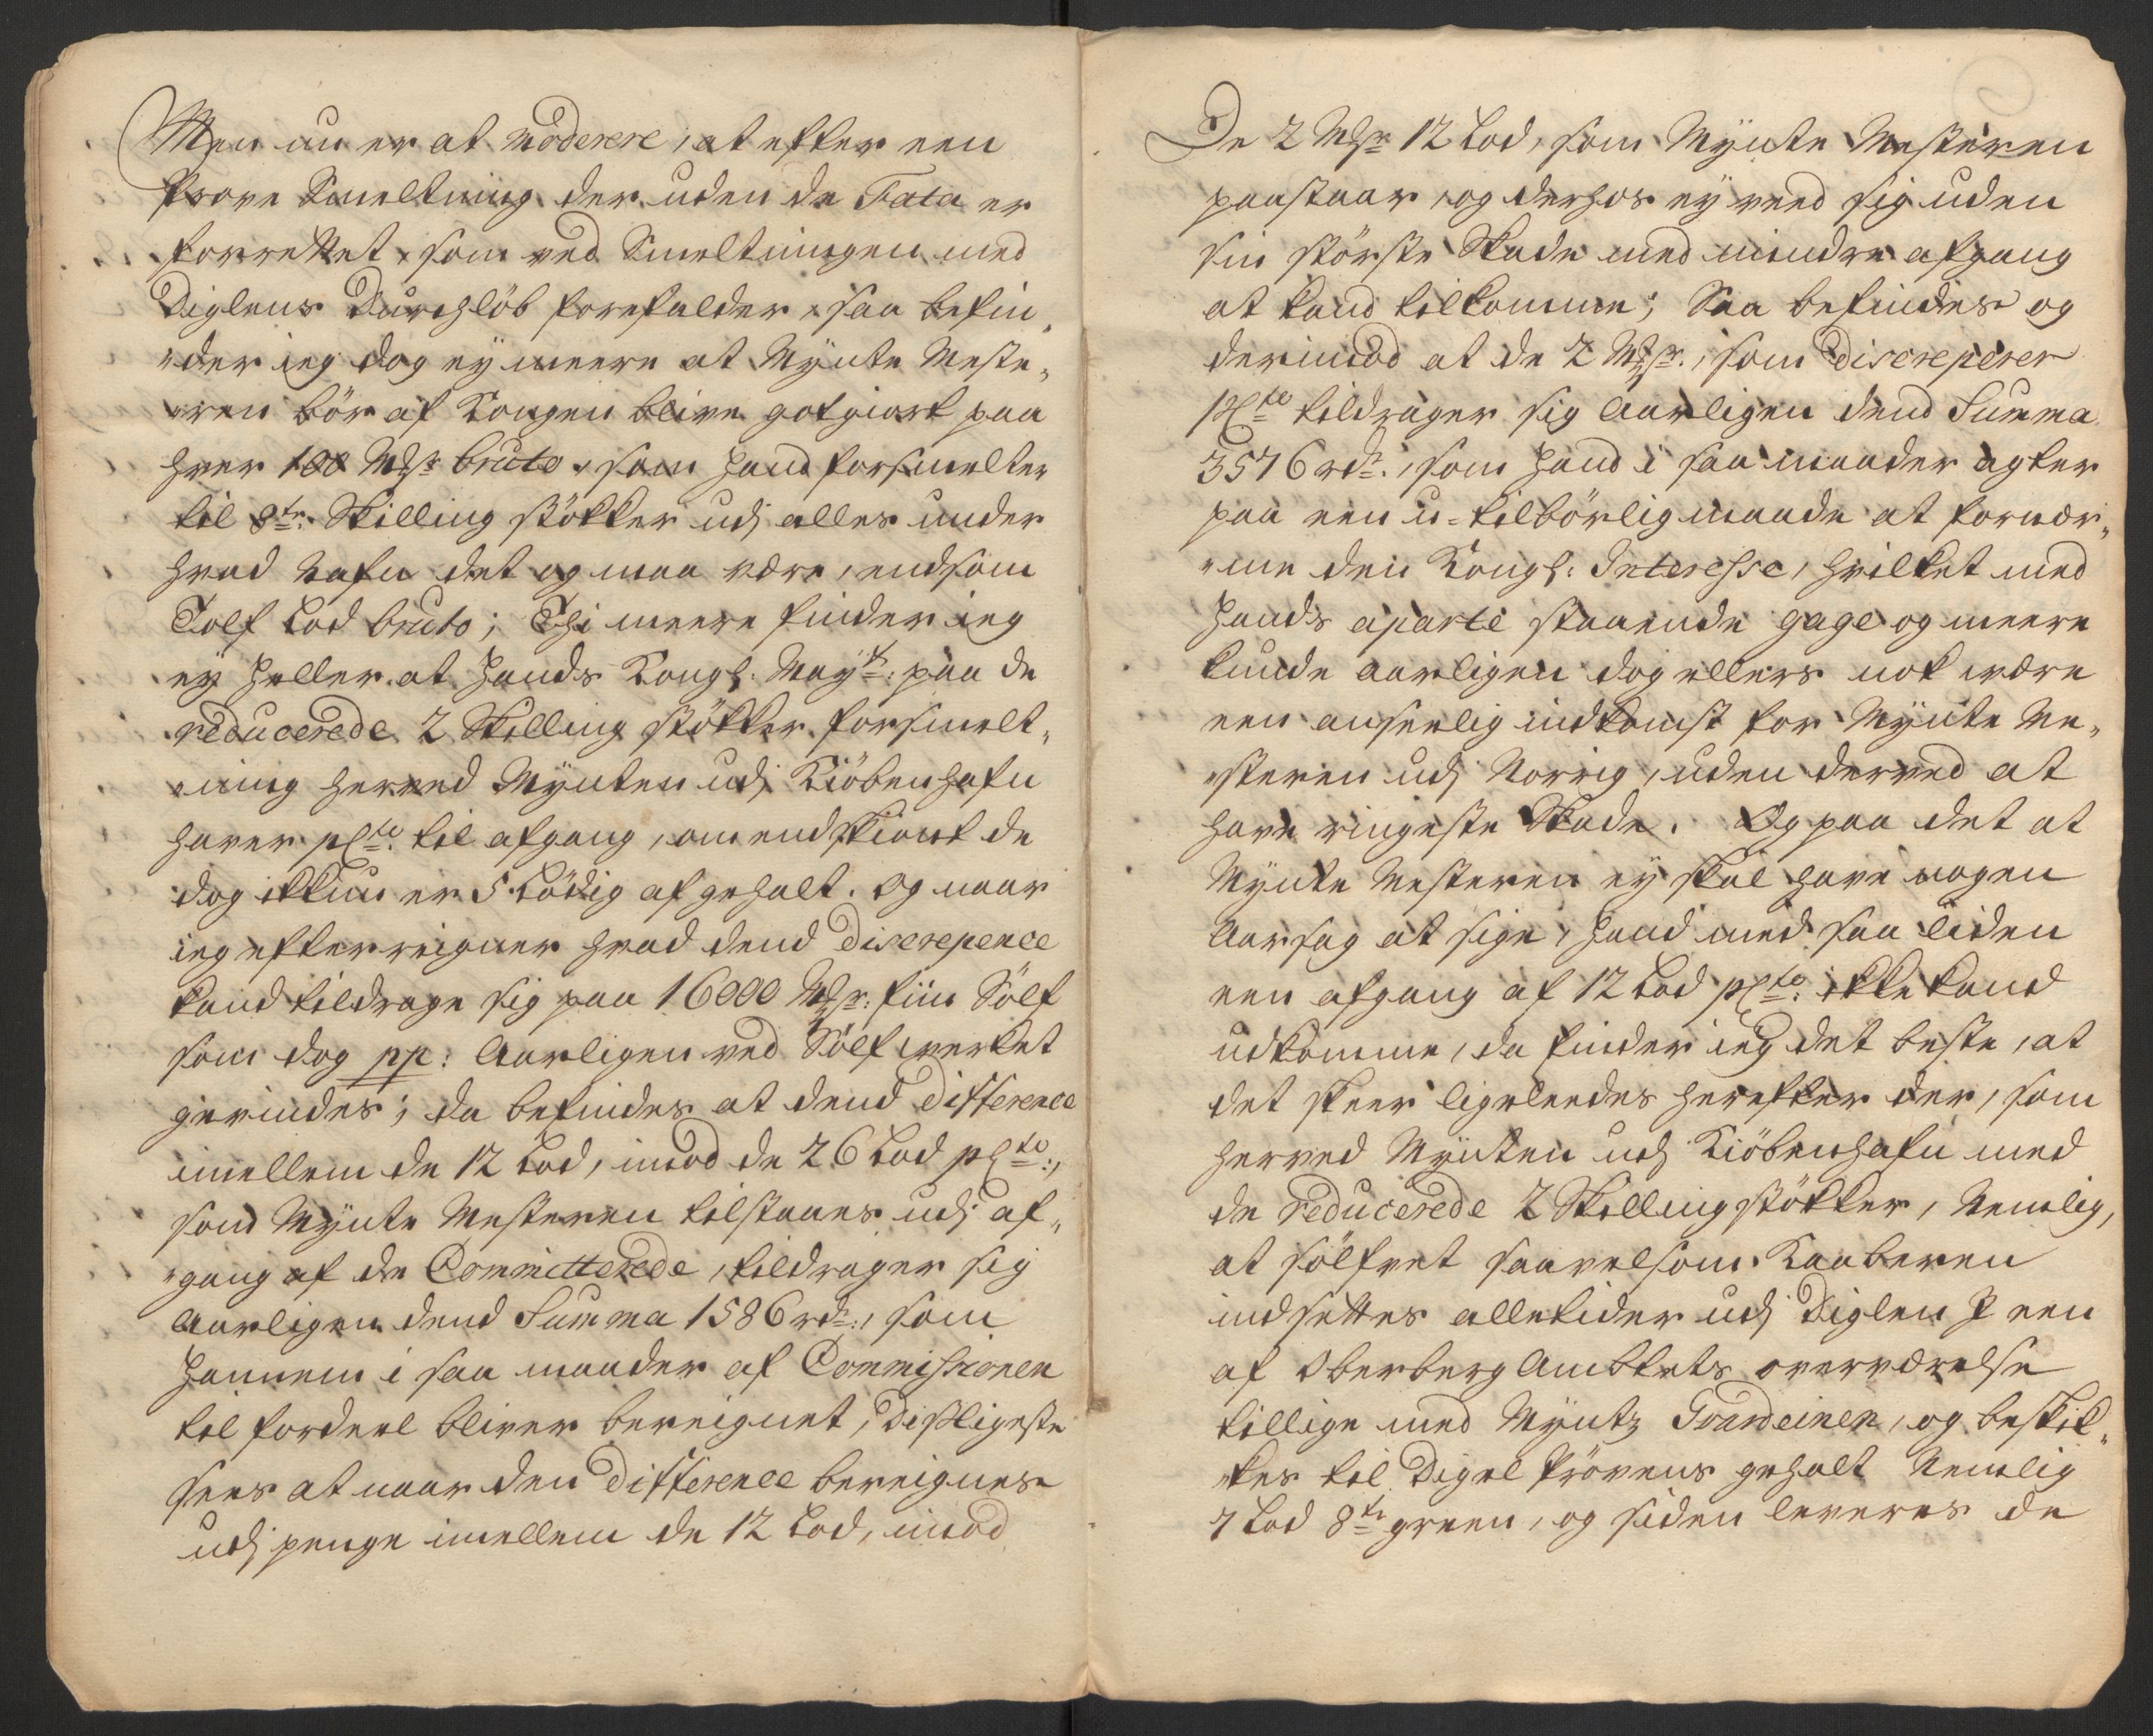 Men nu er at moderere, at efter een
Prove Smeltning der uden de Fata er
forrettet, som ved Smeltningen med
Diglens Durchlöb forefalder, saa befin„
„der ieg dog ey meere at Mynte Meste„
„ren bör af Kongen blive gotgiort paa
hver 100 Mk bruto, som hand forsmelter
til 8te Skilling stökker udj alles under
hvad Nafn det og maa være, endsom
Tolf Lod bruto; Thi meere finder ieg
ey heller at Hands Kongl: Mayt: paa de
reducerede 2 Skilling stökker forsmelt„
„ning herved Mynten udj Kiöbenhafn
haver pCto: til afgang, omendskiönt de
dog ikkun er 5 Lödig af gehalt. Og naar
ieg efterreigner hvad dend discrepence
kand tildrage sig paa 16000 Mk: fiin Sölf
som dog pp: Aarligen ved Sölf verket
gevindes; da befindes at dend difference
imellem de 12 Lod, imod de 26 Lod pCto:,
som Mynte Mesteren tilstaaes udj af„
„gang af de Committerede, tildrager sig
Aarligen dend Summa 1586 rdr:, som
hannem i saa maader af Commissionen
til fordeel bliver bereignet, Dissligeste
sees at naar den difference bereignes
udj penge imellem de 12 Lod, imod
De 2 Mk 12 Lod, som Mynte Mesteren
paastaar, og derhos ey veed sig uden
sin störste Skade med mindre afgang
at kand tilkomme; Saa befindes og
derimod at de 2 Mk:, som discreperer
pCto tildrager sig Aarligen dend Summa
3576 rdr:, som hand i saa maader agter
paa een u-tilbörlig maade at fornær„
„me den Kongl: Interesse, hvilket med
hands aparte staaende gage og meere
kunde aarligen dog ellers nok være
een anseelig indkomst for Mynte Me„
„steren udj Norrig, uden derved at
have ringeste Skade. Og paa det at
Mynte Mesteren ey skal have nogen
Aarsag at sige, hand med saa liden
een afgang af 12 Lod pCto: ikke kand
udkomme, da finder ieg det beste, at
det skeer ligeleedes herefter der, som
herved Mynten udj Kiöbenhafn med
de reducerede 2 Skilling stökker, Nemlig,
at sölfvet saavelsom Kaaberen
indsettes alletider udj Diglen J een
af Oberberg Ambtets overværelse
tillige med Myntz Guardeinen, og beskik„
„kes til Digel Prövens gehalt Nemlig
7 Lod 8te green, og siden leveres de